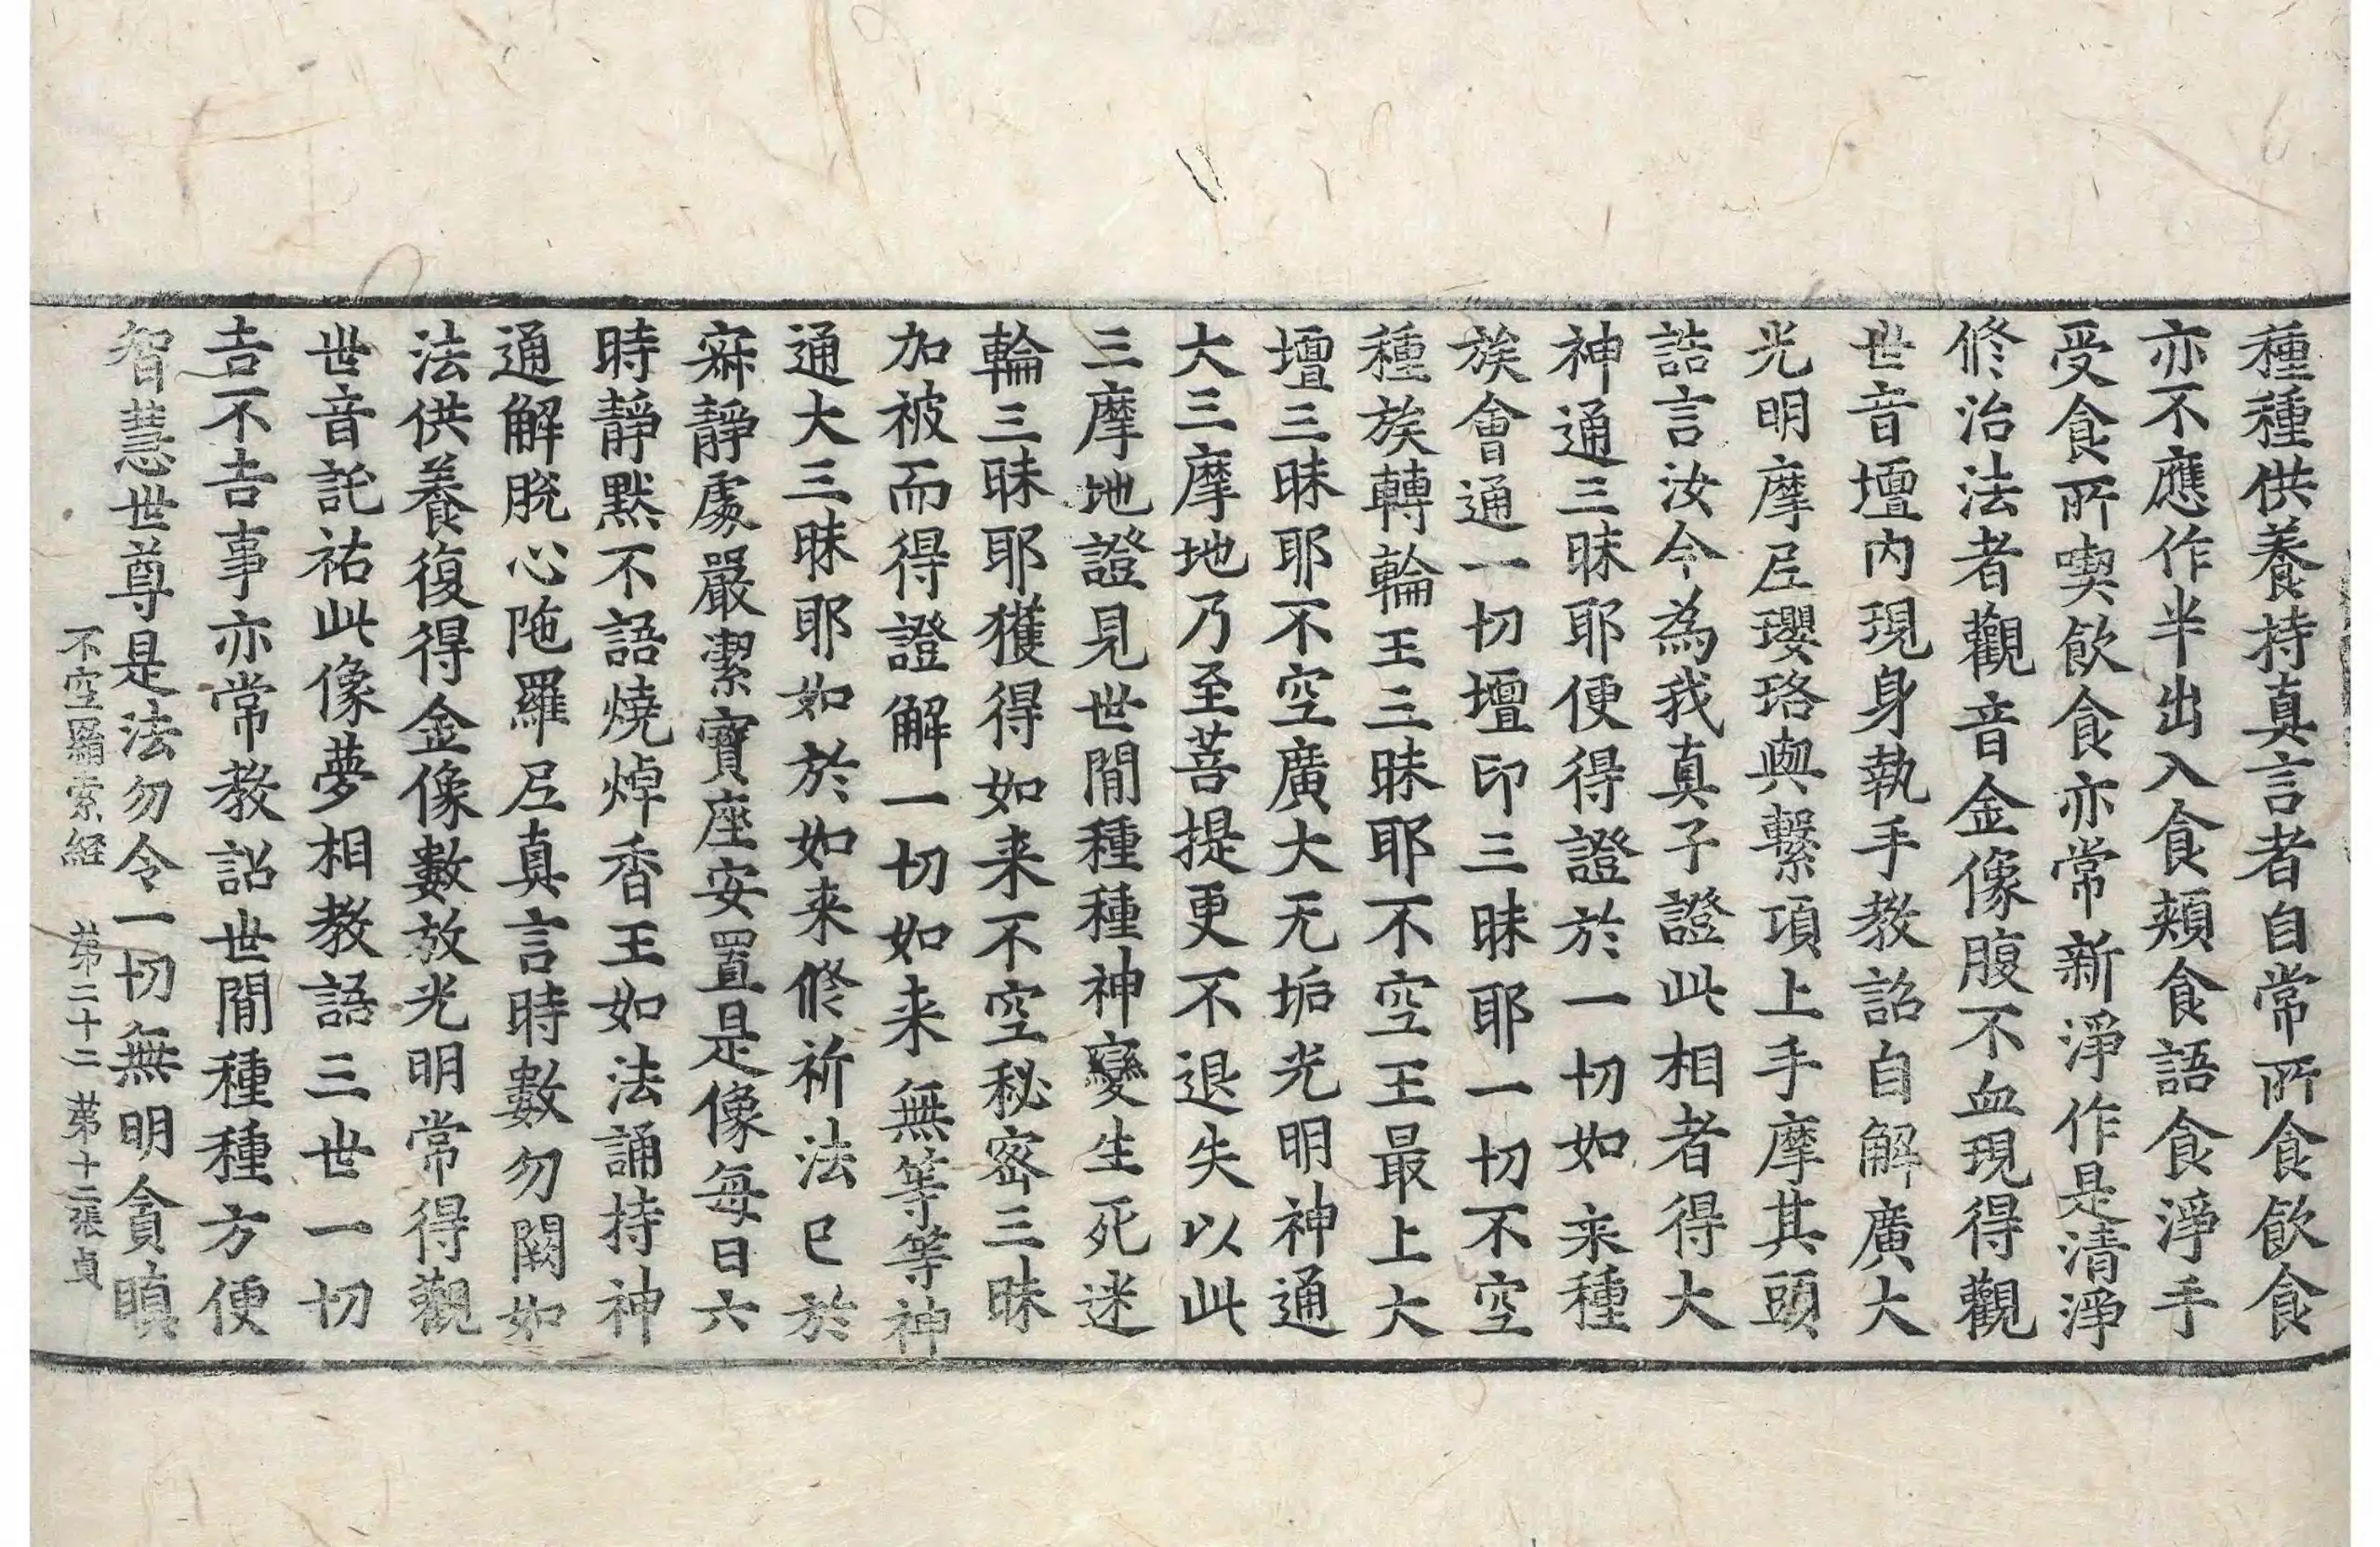 種種供養持真言者自常所食飲食
亦不應作半出入食頰食語食淨手
受食所喫飲食亦常新淨作是清淨
修治法者觀音金像腹不血現得觀
世音壇內現身執手教詔自解廣大
光明摩尼瓔珞與繫項上手摩其頭
誥言汝今為我真子證此相者得大
神通三昧耶便得證於一切如来種
族會通一切壇印三昧耶一切不空
種族轉輪王三昧耶不空王最上大
壇三昧耶不空廣大无垢光明神通
大三摩地乃至菩提更不退失以此
三摩地證見世閒種種神變生死迷
輪三昧耶獲得如来不空秘密三昧
加被而得證解一切如来無等等神
通大三昧耶如於如来修祈法已於
寂靜處嚴潔寶座安置是像每日六
時靜默不語燒焯香王如法誦持神
通解脫心陁羅尼真言時數勿闕如
法供養復得金像數放光明常得觀
世音託祐此像夢相教語三世一切
吉不吉事亦常教詔世閒種種方便
智慧世尊是法勿令一切無明貪瞋
不空羂索經 第二十二 第十二張 貞